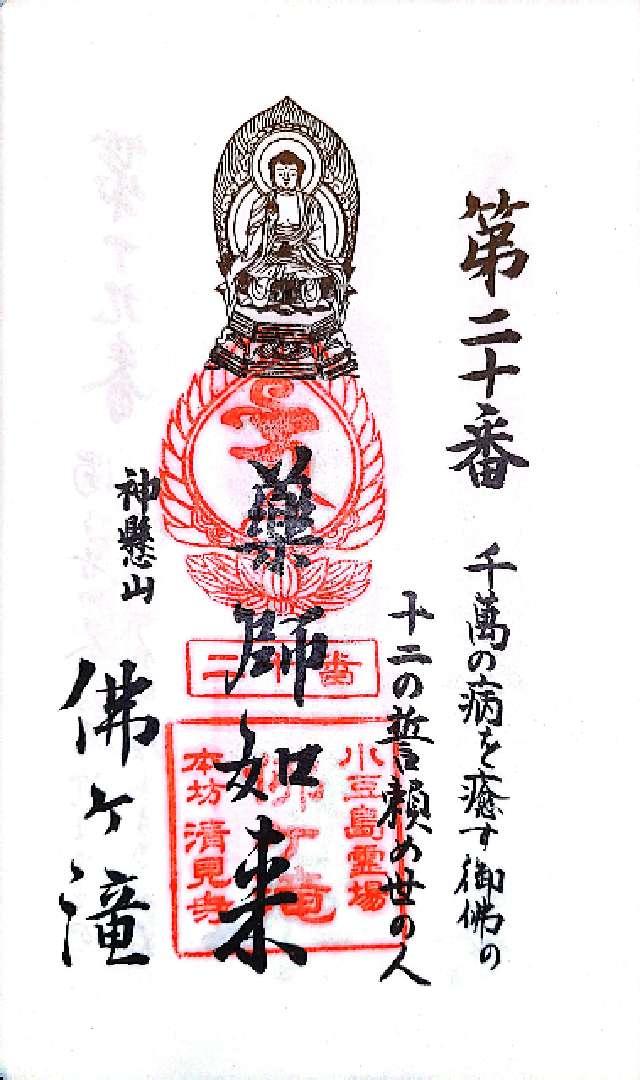 第二十番
千萬の病を癒す御佛の
十二の誓頼め世の人
薬師如来
二十番
小豆島霊場
佛ヶ滝
本坊 清見寺
神懸山
佛ヶ滝